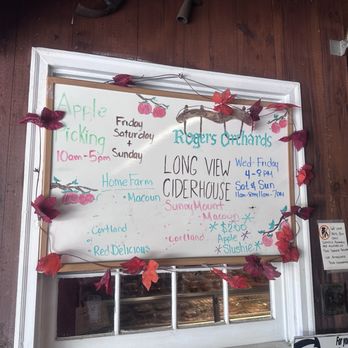 Apple
Picking
10am-5pm
Friday
Saturday
+
Sunday
Home Farm
· Macoun
· Cortland
· Red Delicious
Rogers Orchards
LONG VIEW
CIDERHOUSE
Wed-Friday
4-8PM
Sat & Sun
Sunny Mount
· Macoun
· Cortland
Apple
Slushie
For you